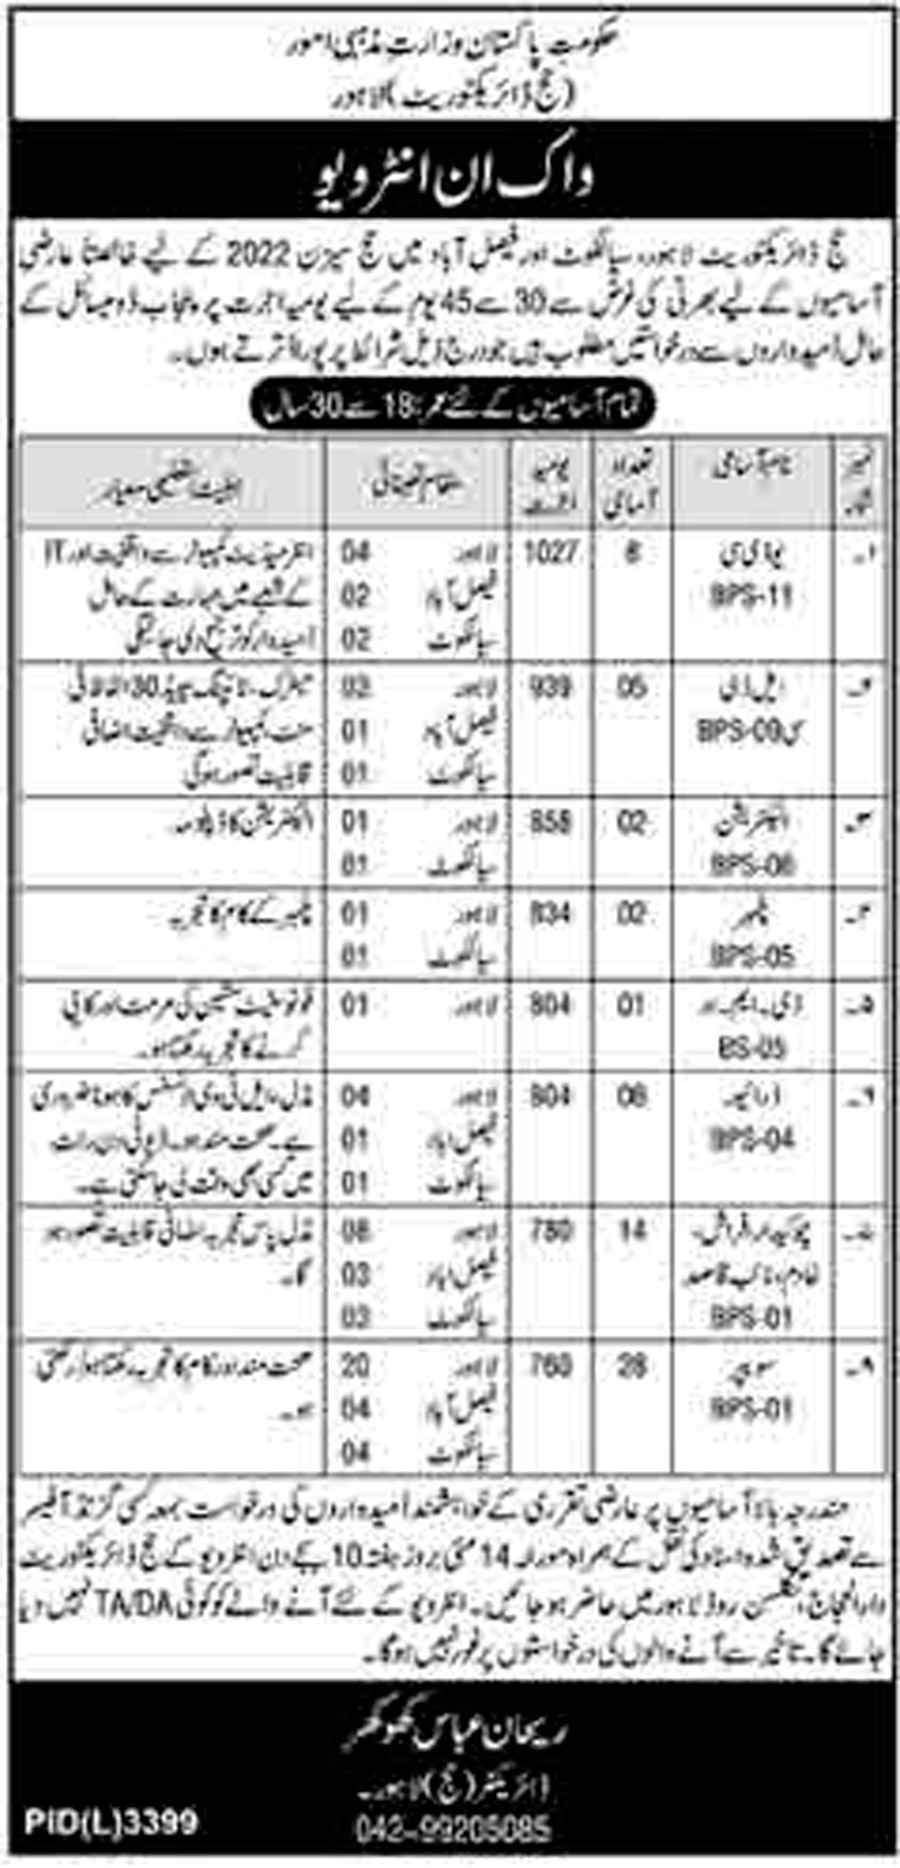 حکومتِ پاکستان وزارتِ مذہبی امور
(حج ڈائریکٹوریٹ) لاہور
واک ان انٹرویو
حج ڈائریکٹوریٹ لاہور، سیالکوٹ اور فیصل آباد میں حج سیزن 2022 کے لیے خالصتاً عارضی
آسامیوں کے لیے بھرتی کی غرض سے 30 سے 45 یوم کے لیے یومیہ اجرت پر پنجاب ڈومیسائل کے
حامل امیدواروں سے درخواستیں مطلوب ہیں جو درج ذیل شرائط پر پورا اترتے ہوں۔
تمام آسامیوں کے لئے عمر: 18 سے 30 سال
نمبر شمار نام آسامی تعداد آسامی یومیہ اجرت مقام تعیناتی اہلیت/تعلیمی معیار
۱۔ یو ڈی سی 8 1027 لاہور 04 انٹرمیڈیٹ کمپیوٹر سے واقفیت اور IT
BPS-11 فیصل آباد 02 کے شعبے میں مہارت کے حامل
سیالکوٹ 02 امیدوار کو ترجیح دی جائیگی
۲۔ ایل ڈی 05 939 لاہور 03 میٹرک، ٹائپنگ سپیڈ 30 الفاظ فی
سی BPS-09 فیصل آباد 01 منٹ، کمپیوٹر سے واقفیت اضافی
سیالکوٹ 01 قابلیت تصور ہوگی
۳۔ الیکٹریشن 02 858 لاہور 01 الیکٹریشن کا ڈپلومہ
BPS-06 سیالکوٹ 01
۴۔ پلمبر 02 834 لاہور 01 پلمبر کے کام کا تجربہ
BPS-05 سیالکوٹ 01
۵۔ ڈی۔ایم۔او 01 804 لاہور 01 فوٹوسٹیٹ مشین کی مرمت اور کاپی
BS-05 کرنے کا تجربہ رکھتا ہو۔
۶۔ ڈرائیور 06 804 لاہور 04 مڈل، ایل ٹی وی لائسنس کا ہونا ضروری
BPS-04 فیصل آباد 01 ہے۔ صحت مند ہو۔ ڈیوٹی دن رات
سیالکوٹ 01 میں کسی بھی وقت لی جاسکتی ہے۔
چوکیدار، فراش، 14 780 لاہور 08 مڈل پاس تجربہ اضافی قابلیت تصور ہو
خادم، نائب قاصد فیصل آباد 03 گا۔
BPS-01 سیالکوٹ 03
سویپر 28 760 لاہور 20 صحت مند اور کام کا تجربہ رکھتا ہو/رکھتی
BPS-01 فیصل آباد 04 ہو۔
سیالکوٹ 04
مندرجہ بالا آسامیوں پر عارضی تقرری کے خواہشمند امیدواروں کی درخواست بمعہ کسی گزٹڈ آفیسر
سے تصدیق شدہ اسناد کی نقل کے ہمراہ مورخہ 14 مئی بروز ہفتہ 10 بجے دن انٹرویو کے حج ڈائریکٹوریٹ
دارالحجاج، نکلسن روڈ لاہور میں حاضر ہو جائیں۔ انٹرویو کے لئے آنے والے کو کوئی TA/DA نہیں دیا
جائے گا۔ تاخیر سے آنے والوں کی درخواستوں پر غور نہیں ہوگا۔
ریحان عباس کھوکھر
ڈائریکٹر (حج) لاہور۔
042-99205085
PID(L)3399